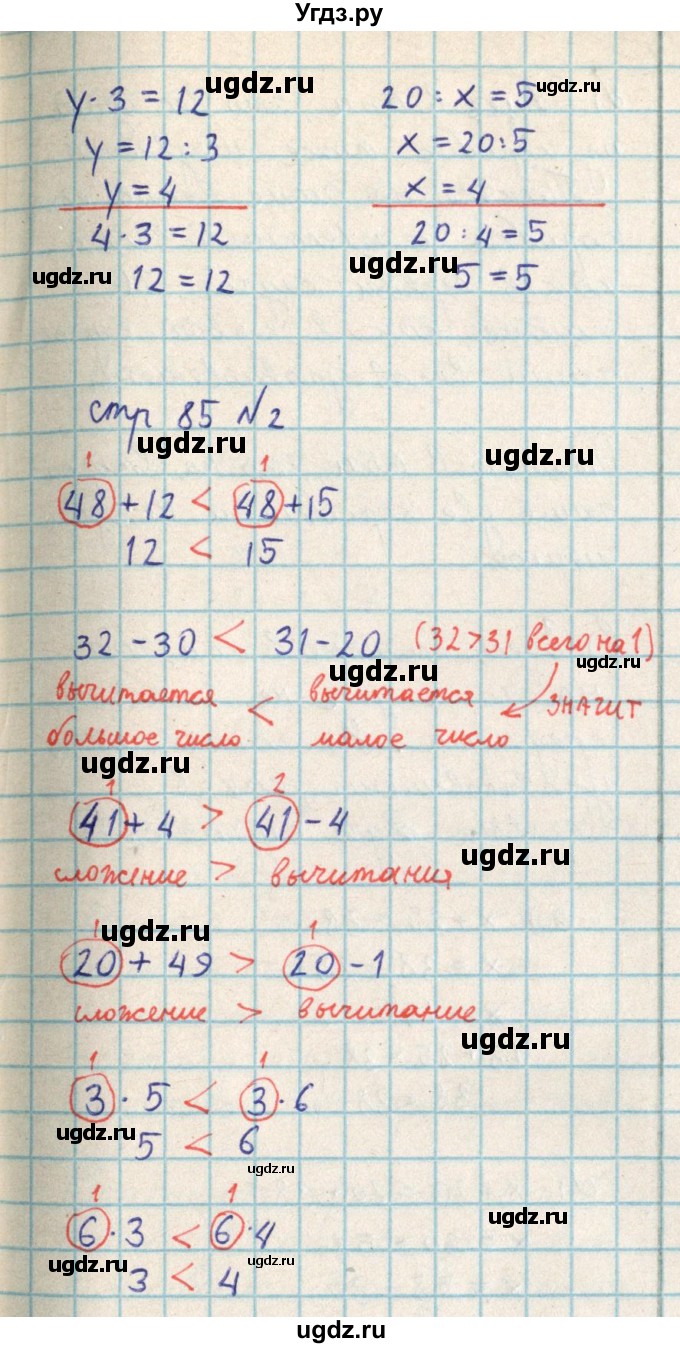 Угдз.ру
ugdz.ru ugdz.ru
y · 3 = 12 20 : x = 5
y = 12 : 3 x = 20 : 5
y = 4 x = 4
4 · 3 = 12 20 : 4 = 5
ugdz.ru 12 = 12 ugdz.ru 5 = 5
стр 85 №2
ugdz.ru ugdz.ru
1 1
48 + 12 < 48 + 15
12 < 15
32 - 30 < 31 - 20 (32 > 31 всего на 1)
ugdz.ru ugdz.ru
вычитается < вычитается ЗНАЧИТ
большое число малое число
ugdz.ru
1 2
41 + 4 > 41 - 4
ugdz.ru
сложение > вычитания
ugdz.ru
1 1
20 + 49 > 20 - 1
сложение > вычитание
ugdz.ru
1 1
3 · 5 < 3 · 6
ugdz.ru 5 < 6
ugdz.ru
1 1
6 · 3 < 6 · 4
ugdz.ru
ugdz.ru 3 < 4 ugdz.ru
ugdz.ru